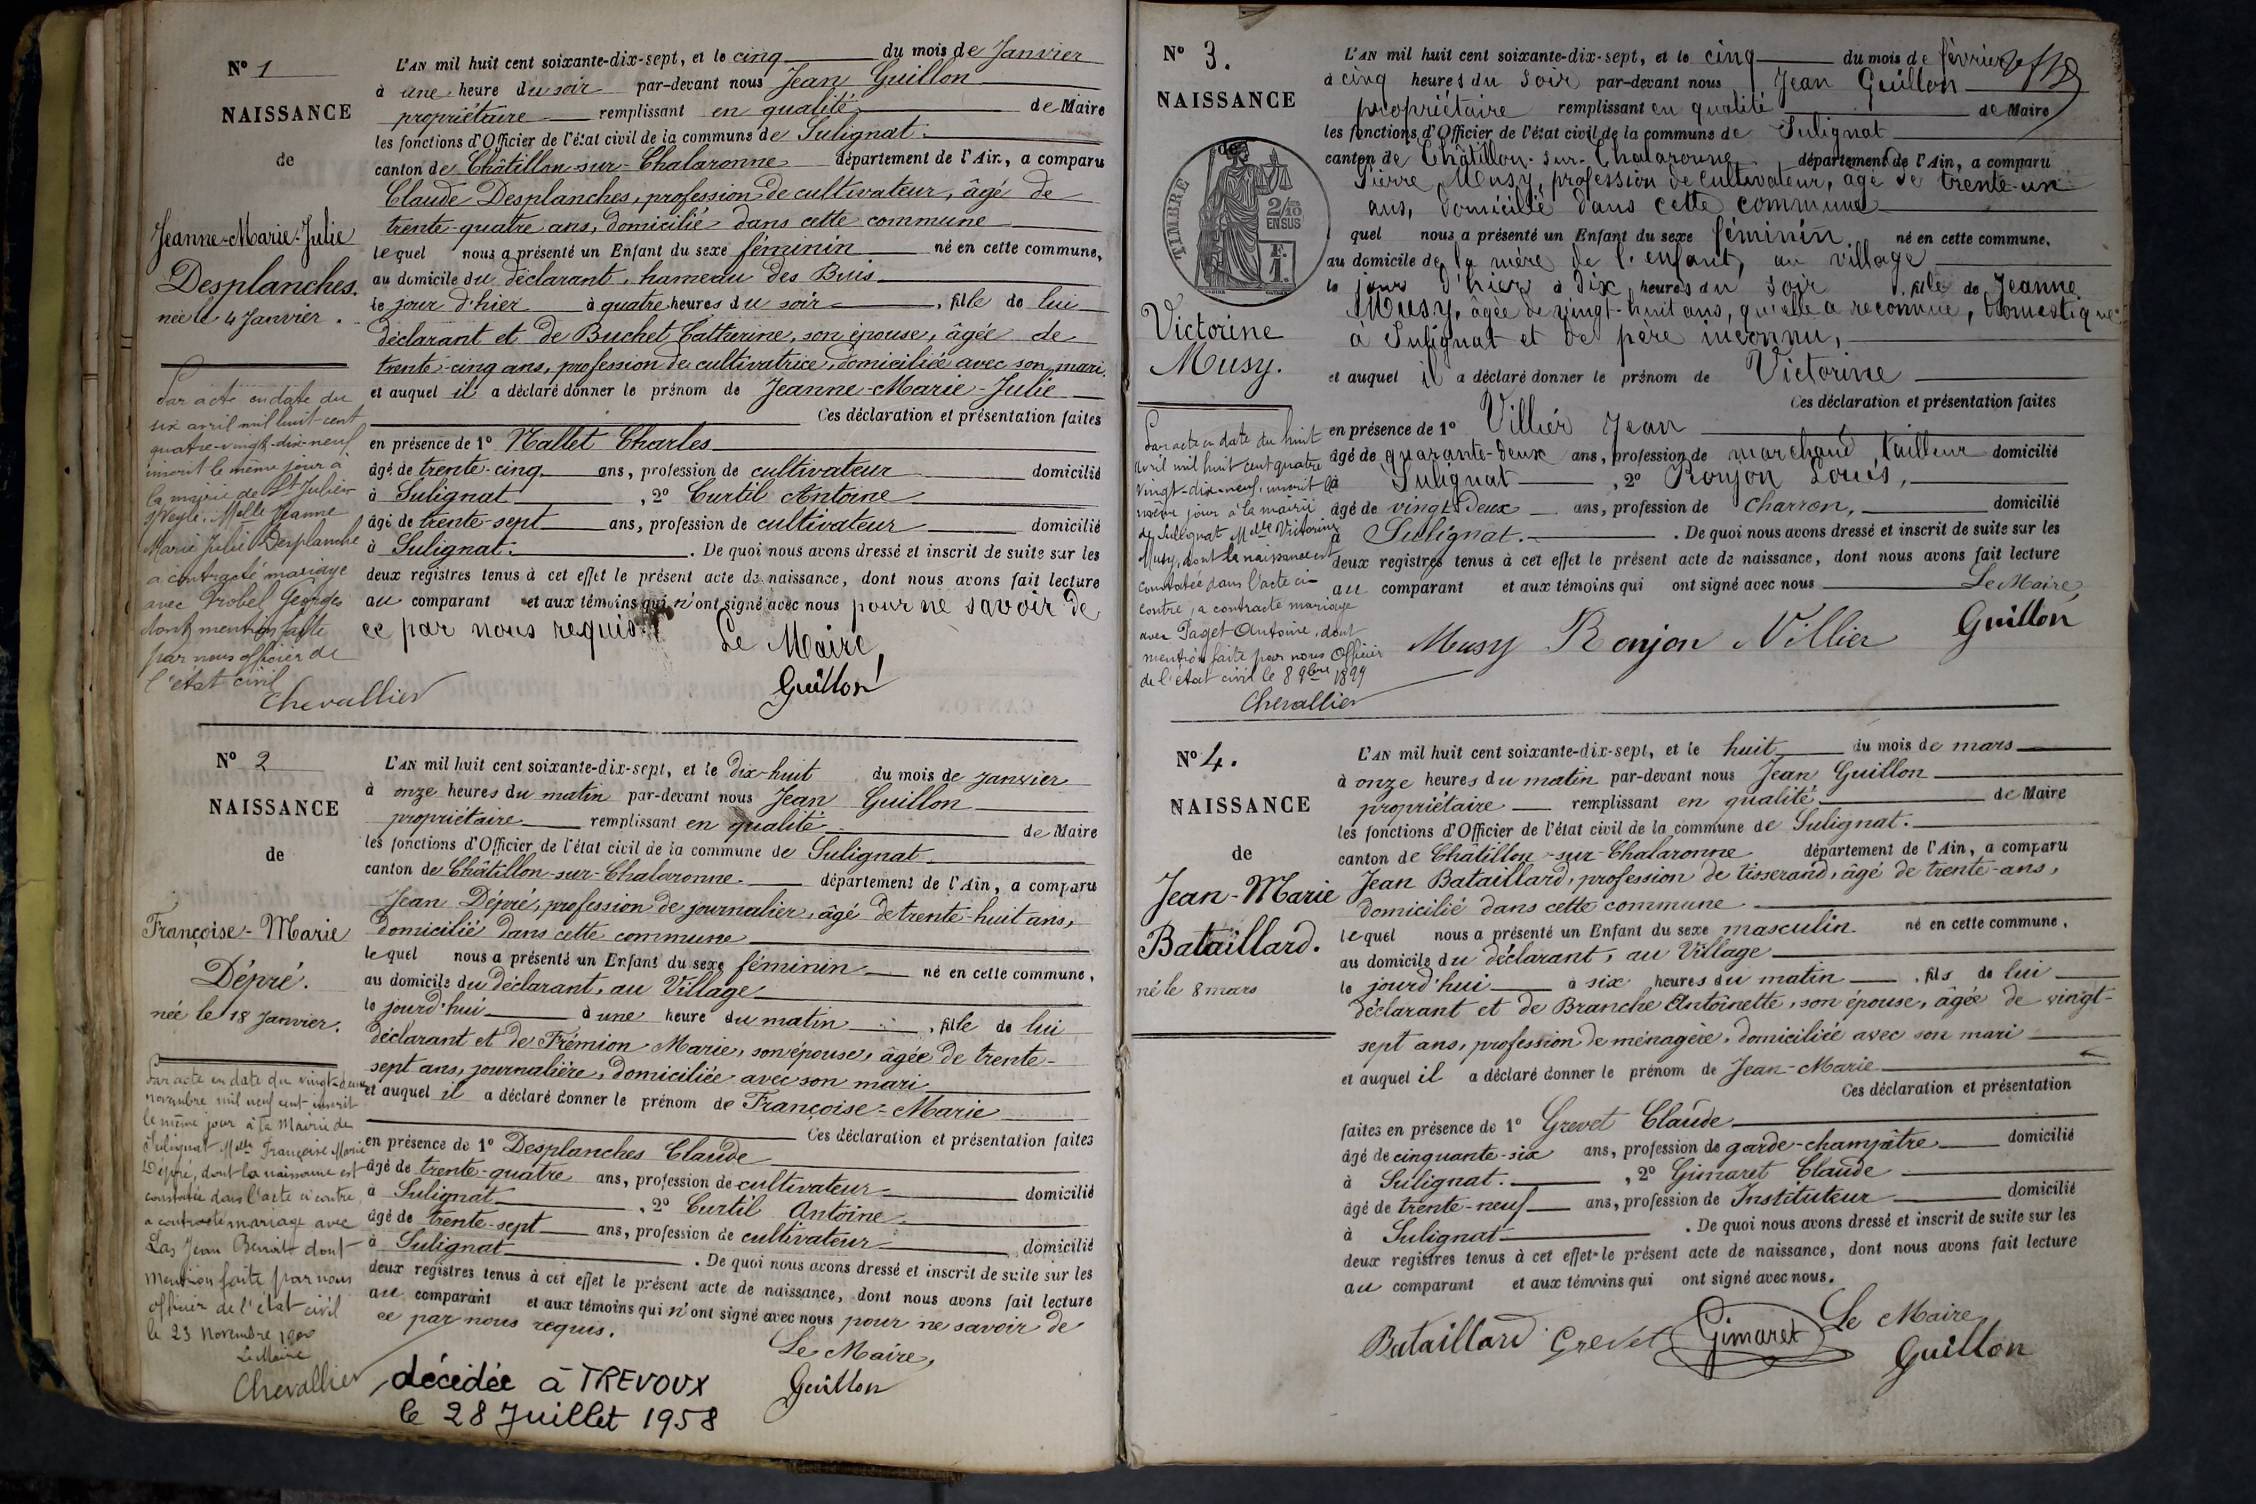 N° 1
NAISSANCE
de
Jeanne-Marie-Julie
Desplanches.
née le 4 Janvier.
Par acte en date du
six avril mil huit-cent
quatre-vingt-dix-neuf
inscrit le même jour à
la mairie de St Julien
s/Veyle, Melle Jeanne
Marie Julie Desplanche
a contracté mariage
avec Probel Georges
dont mention faite
par nous officier de
l'état civil
Chevallier
L'AN mil huit cent soixante-dix-sept, et le cinq du mois de Janvier
à une heure du soir par-devant nous Jean Guillon
propriétaire remplissant en qualité de Maire
les fonctions d'Officier de l'état civil de la commune de Sulignat.
canton de Châtillon-sur-Chalaronne département de l'Ain, a comparu
Claude Desplanches, profession de cultivateur, âgé de
trente-quatre ans, domicilié dans cette commune
lequel nous a présenté un Enfant du sexe féminin né en cette commune,
au domicile du déclarant, hameau des Buis
le jour d'hier à quatre heures du soir, fille de lui
déclarant et de Buchet Catherine, son épouse, âgée de
trente-cinq ans, profession de cultivatrice, domiciliée avec son mari.
et auquel il a déclaré donner le prénom de Jeanne-Marie-Julie
Ces déclaration et présentation faites
en présence de 1° Nallet Charles
âgé de trente-cinq ans, profession de cultivateur domicilié
à Sulignat, 2° Curtil Antoine
âgé de trente-sept ans, profession de cultivateur domicilié
à Sulignat. De quoi nous avons dressé et inscrit de suite sur les
deux registres tenus à cet effet le présent acte de naissance, dont nous avons fait lecture
au comparant et aux témoins qui n'ont signé avec nous pour ne savoir de
ce par nous requis.
Le Maire,
Guillon
N° 2
NAISSANCE
de
Françoise-Marie
Dépré.
née le 18 Janvier.
Par acte en date du vingt-deux
novembre mil neuf cent inscrit
le même jour à la Mairie de
Sulignat Melle Françoise Marie
Dépré, dont la naissance est
constatée dans l'acte ci contre,
a contracté mariage avec
Las Jean Benoit dont
mention faite par nous
officier de l'état civil
le 23 novembre 1900
Le Maire
Chevallier
L'AN mil huit cent soixante-dix-sept, et le dix-huit du mois de janvier
à onze heures du matin par-devant nous Jean Guillon
propriétaire remplissant en qualité de Maire
les fonctions d'Officier de l'état civil de la commune de Sulignat
canton de Châtillon-sur-Chalaronne. département de l'Ain, a comparu
Jean Dépré, profession de journalier, âgé de trente-huit ans,
domicilié dans cette commune
lequel nous a présenté un Enfant du sexe féminin né en cette commune,
au domicile du déclarant, au Village
le jourd'hui à une heure du matin, fille de lui
déclarant et de Frémion Marie, son épouse, âgée de trente-
sept ans, journalière, domiciliée avec son mari
et auquel il a déclaré donner le prénom de Françoise-Marie
Ces déclaration et présentation faites
en présence de 1° Desplanches Claude
âgé de trente-quatre ans, profession de cultivateur domicilié
à Sulignat, 2° Curtil Antoine
âgé de trente-sept ans, profession de cultivateur domicilié
à Sulignat. De quoi nous avons dressé et inscrit de suite sur les
deux registres tenus à cet effet le présent acte de naissance, dont nous avons fait lecture
au comparant et aux témoins qui n'ont signé avec nous pour ne savoir de
ce par nous requis.
Le Maire,
Guillon
décédée à TREVOUX
le 28 Juillet 1958
N° 3.
NAISSANCE
de
TIMBRE
2/10
EN SUS
F.
1.
Victorine
Musy.
Par acte en date du huit
avril mil huit cent quatre
vingt-dix-neuf, inscrit le
même jour à la mairie
de Sulignat Melle Victorine
Musy, dont la naissance est
constatée dans l'acte ci-
contre, a contracté mariage
avec Paget Antoine, dont
mention faite par nous Officier
de l'état civil le 8 9bre 1899
Chevallier
L'AN mil huit cent soixante-dix-sept, et le cinq du mois de février
à cinq heures du soir par-devant nous Jean Guillon
propriétaire remplissant en qualité de Maire
les fonctions d'Officier de l'état civil de la commune de Sulignat
canton de Châtillon-sur-Chalaronne, département de l'Ain, a comparu
Pierre Musy, profession de cultivateur, âgé de trente-un
ans, domicilié dans cette commune
quel nous a présenté un Enfant du sexe féminin né en cette commune,
au domicile de la mère de l'enfant, au village
le jour d'hier à dix heures du soir, fille de Jeanne
Musy, âgée de vingt-huit ans, qu'elle a reconnue, domestique
à Sulignat et de père inconnu,
et auquel il a déclaré donner le prénom de Victorine
Ces déclaration et présentation faites
en présence de 1° Villier Jean
âgé de quarante-deux ans, profession de marchand tailleur domicilié
à Sulignat, 2° Ronjon Louis,
âgé de vingt deux ans, profession de charron, domicilié
à Sulignat. De quoi nous avons dressé et inscrit de suite sur les
deux registres tenus à cet effet le présent acte de naissance, dont nous avons fait lecture
au comparant et aux témoins qui ont signé avec nous
Le Maire,
Musy Ronjon Villier Guillon
N° 4.
NAISSANCE
de
Jean-Marie
Bataillard.
né le 8 mars
L'AN mil huit cent soixante-dix-sept, et le huit du mois de mars
à onze heures du matin par-devant nous Jean Guillon
propriétaire remplissant en qualité de Maire
les fonctions d'Officier de l'état civil de la commune de Sulignat.
canton de Châtillon-sur-Chalaronne département de l'Ain, a comparu
Jean Bataillard, profession de tisserand, âgé de trente-ans,
domicilié dans cette commune
lequel nous a présenté un Enfant du sexe masculin né en cette commune,
au domicile du déclarant, au Village
le jourd'hui à six heures du matin, fils de lui
déclarant et de Branche Antoinette, son épouse, âgée de vingt-
sept ans, profession de ménagère, domiciliée avec son mari
et auquel il a déclaré donner le prénom de Jean-Marie
Ces déclaration et présentation
faites en présence de 1° Grevet Claude
âgé de cinquante-six ans, profession de garde-champêtre domicilié
à Sulignat., 2° Gimaret Claude
âgé de trente-neuf ans, profession de Instituteur domicilié
à Sulignat. De quoi nous avons dressé et inscrit de suite sur les
deux registres tenus à cet effet le présent acte de naissance, dont nous avons fait lecture
au comparant et aux témoins qui ont signé avec nous.
Le Maire
Bataillard Grevet Gimaret Guillon